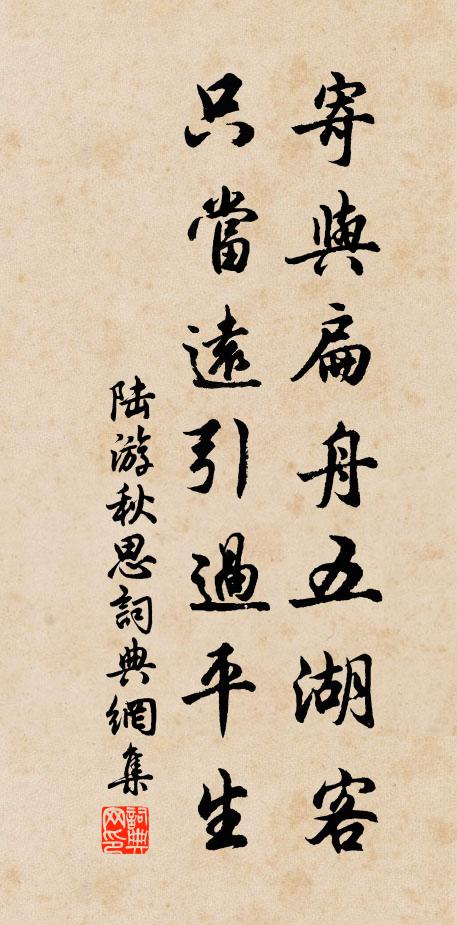 寄與扁舟五湖客
只當遠引過平生
陆游秋思詞典網集
詞典
网印